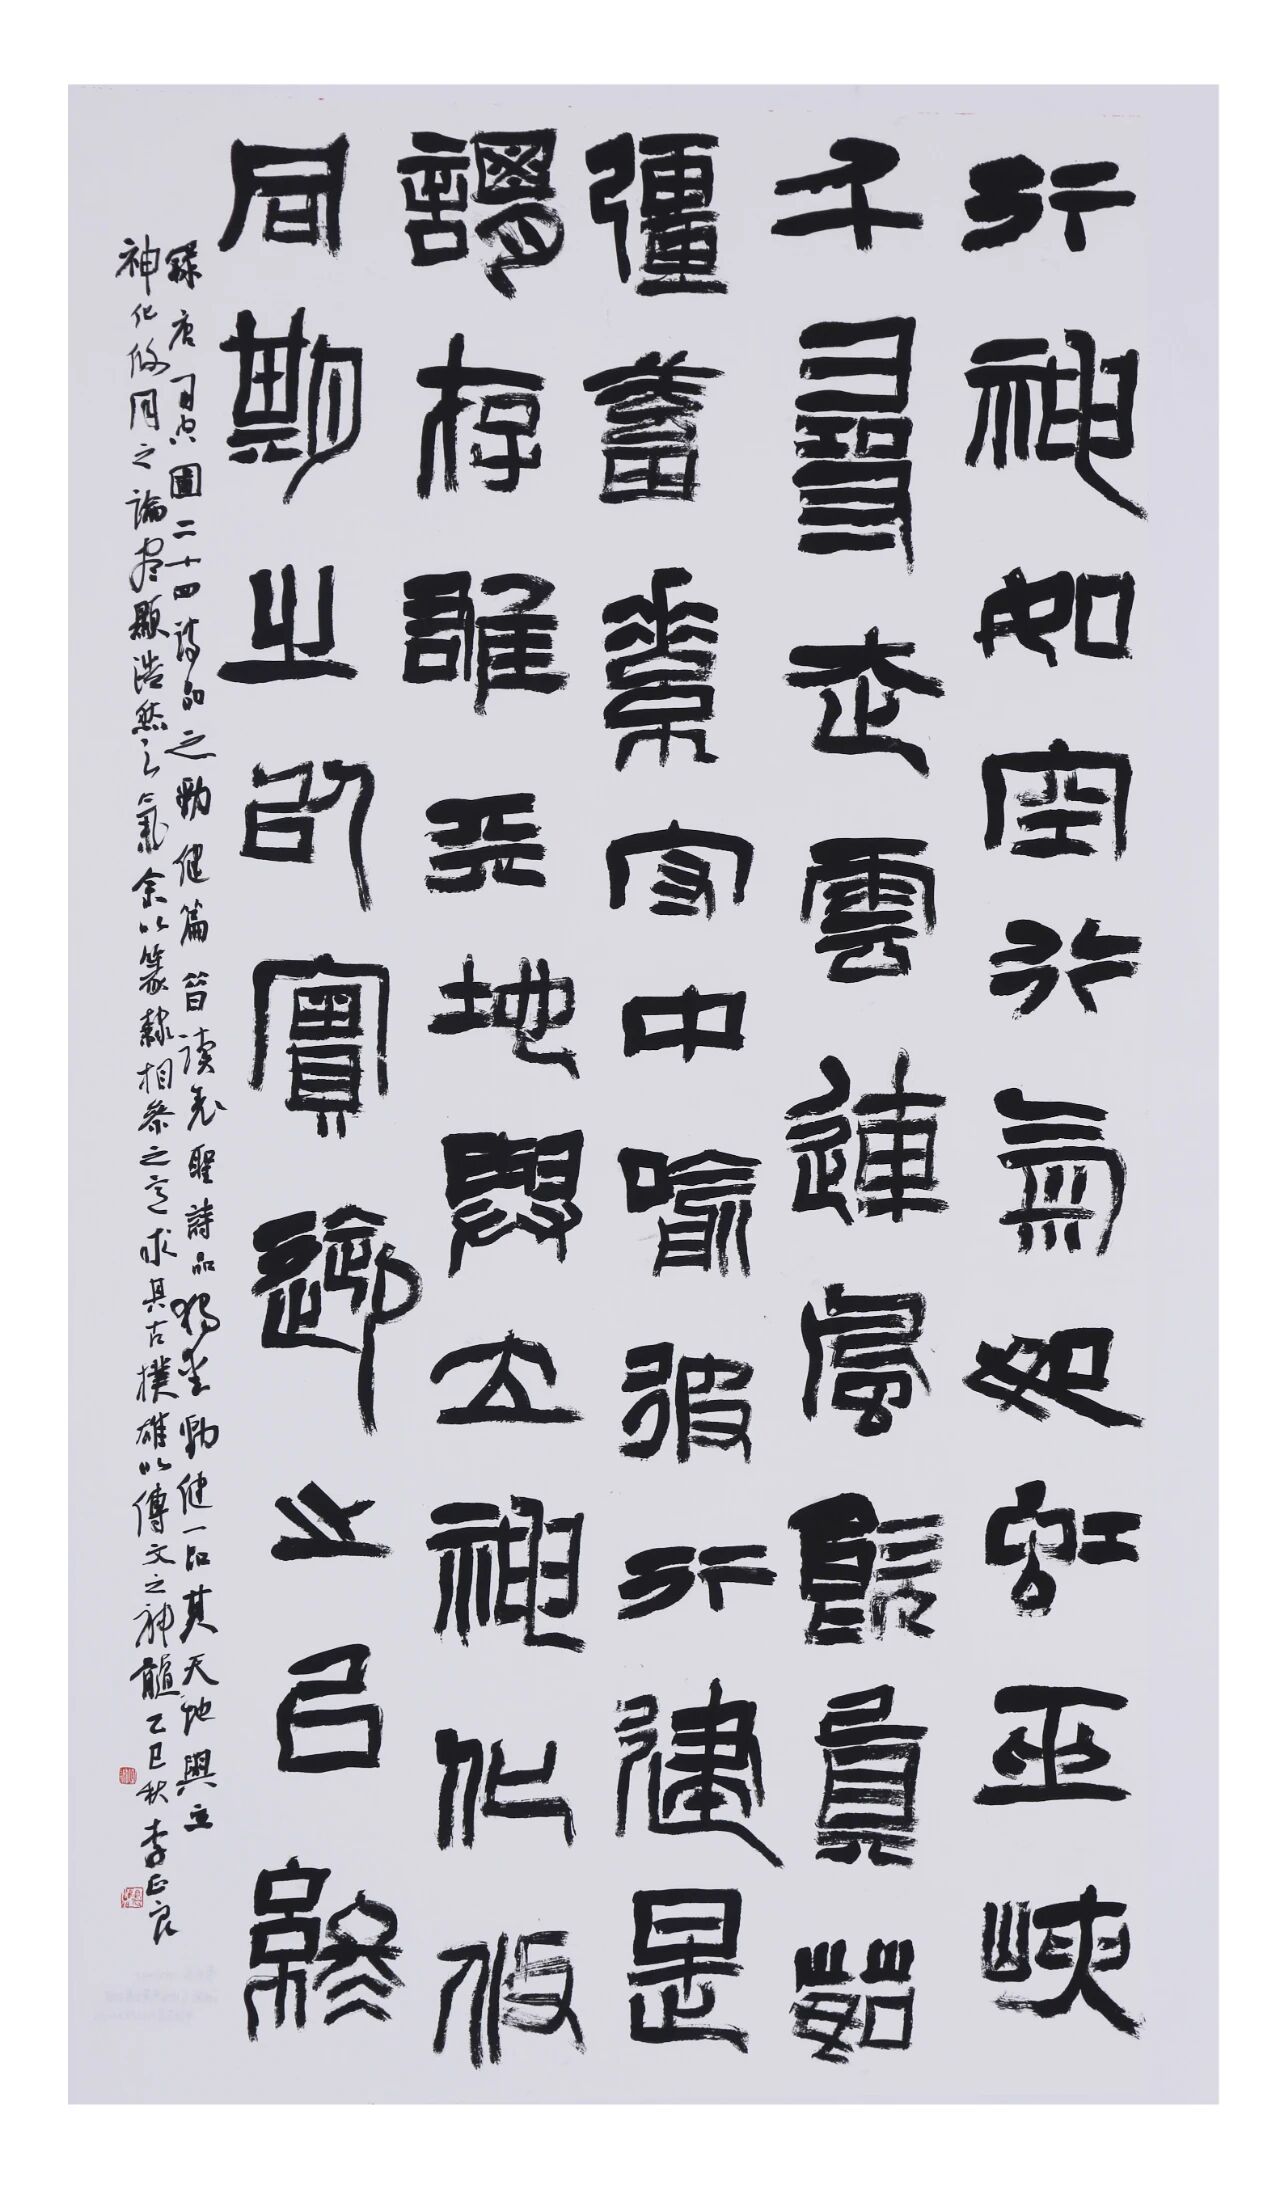 行神如空行氣如虹巫峽
千尋走雲連風飲真茹
彊蓄素守中喻彼行健是
謂存誰天地與立神化攸
同期之以實御之以終
錄唐司空圖二十四詩品之勁健篇昔讀表聖詩品獨愛勁健一品其天地與立
神化攸同之論盡顯浩然之氣余以篆隸相參之意求其古樸雄以傳文之神髓乙巳秋李正良